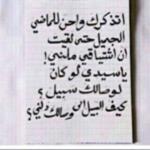 اتذكرك واحن للماضي
الجميل حتى لقيت
ان أشتياقي ملني!
ياسيدي لو كان
لوصالك سبيل؟
كيف السبيل الى وصالك دلني؟